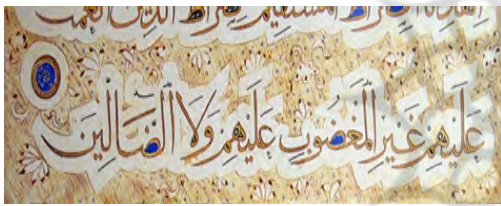 اهدنا الصراط المستقيم صراط الذين انعمت
عَلَيْهِمْ غَيْرِ الْمَغْضُوبِ عَلَيْهِمْ وَلَا الضَّالِّينَ